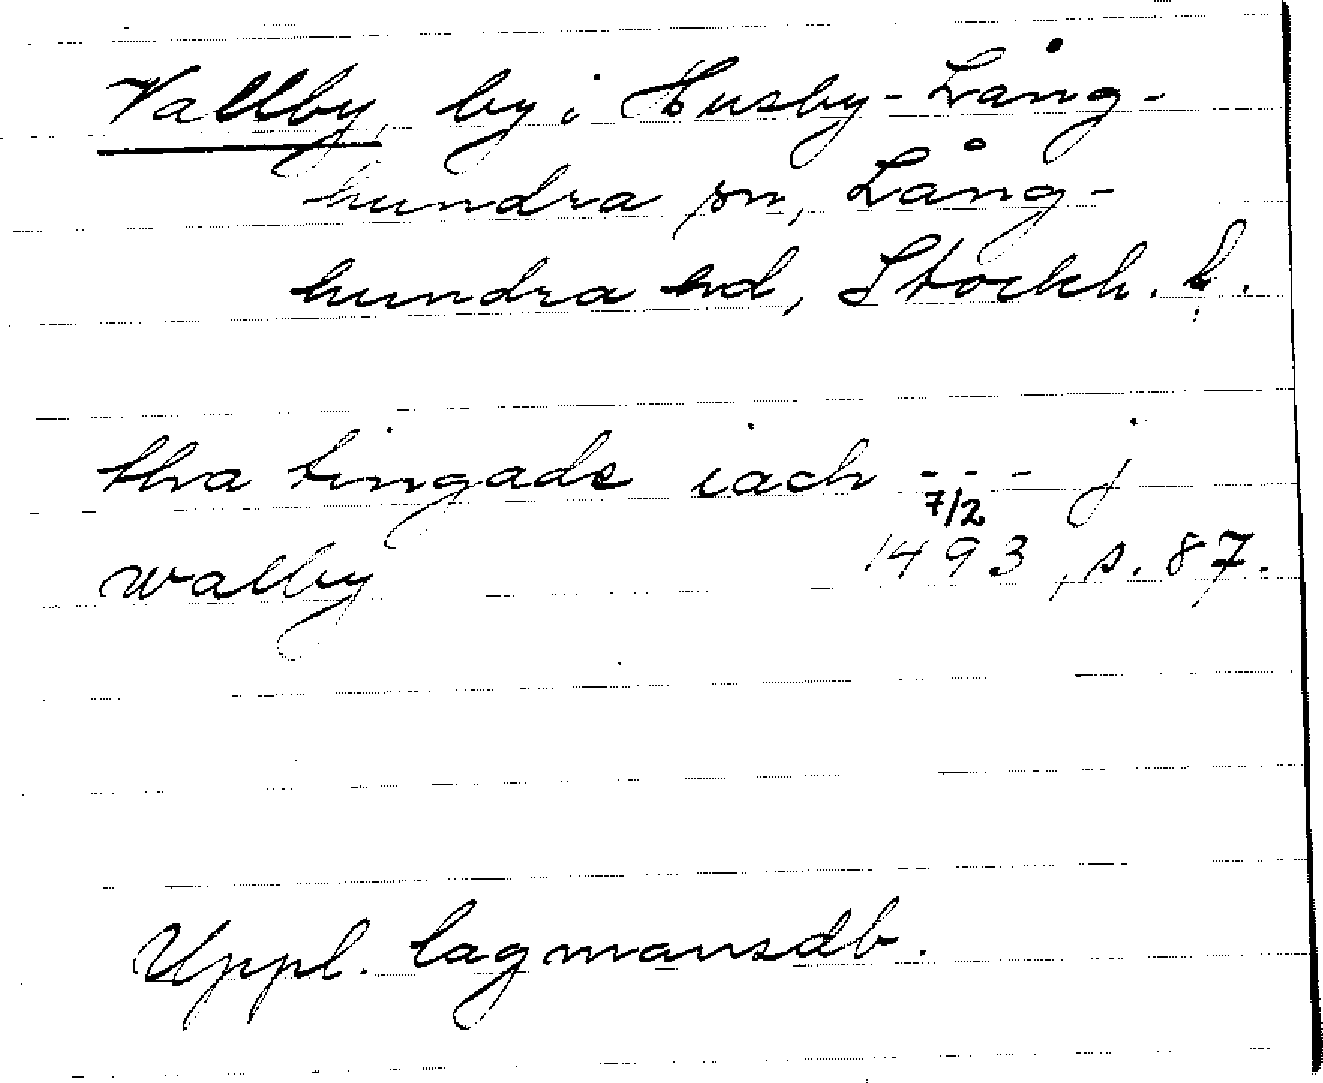 Vallby, by i Husby-Lång-
hundra sn, Lång-
hundra hd, Stockh. l.
tha tingade iach --- j
walby 7/2 1493, s. 87.
Uppl. lagmansdb.